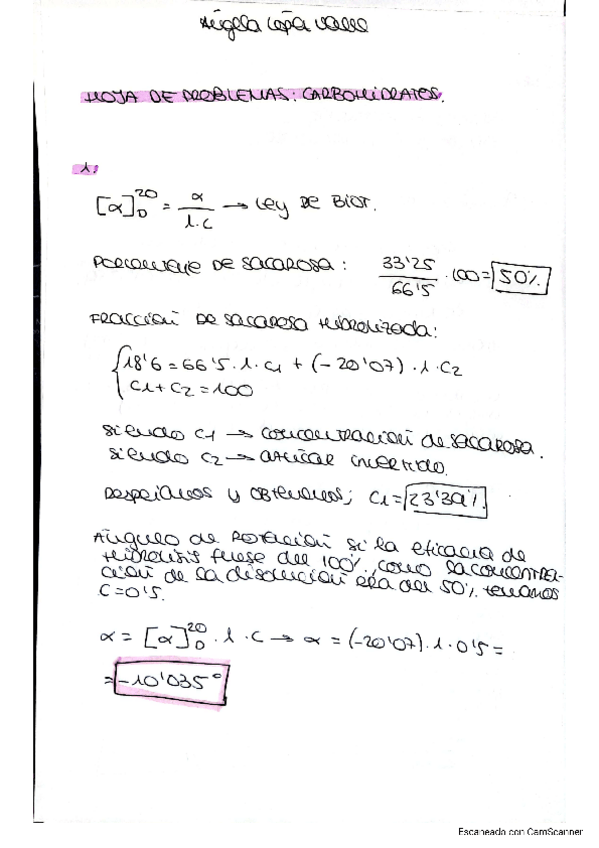 Ángela López Valle
HOJA DE PROBLEMAS: CARBOHIDRATOS.
1.
[α]D^20 = α / l.c → Ley de Biot.
Porcentaje de sacarosa: 33'25 / 66'5 · 100 = 50%
Fracción de sacarosa hidrolizada:
{18'6 = 66'5 · 1 · c1 + (-20'07) · 1 · c2
C1 + C2 = 100
siendo c1 → concentración de sacarosa.
siendo c2 → azúcar invertido.
Despejamos y obtenemos; C1 = 23'39%.
Ángulo de rotación si la eficacia de
hidrólisis fuese del 100%, como la concentra-
ción de la disolución era del 50% tenemos
C=0'5.
α = [α]D^20 · l · c → α = (-20'07) · 1 · 0'5 =
= -10'035°
Escaneado con CamScanner